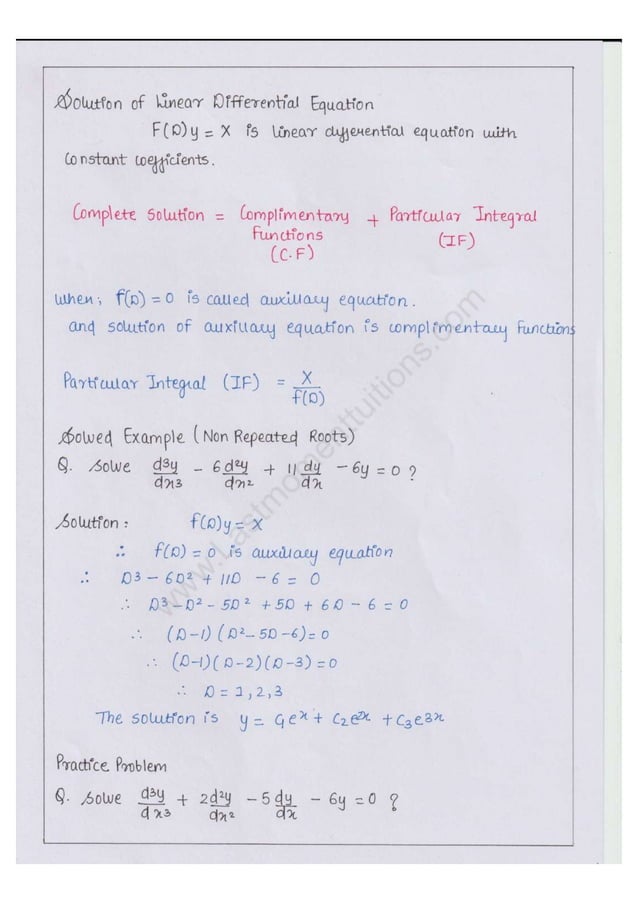 Solution of Linear Differential Equation
F(D)y = X is linear differential equation with
constant coefficients.
Complete Solution = Complimentary + Particular Integral
Functions (IF)
(C.F)
When; f(D) = 0 is called auxillary equation.
and solution of auxillary equation is complimentary functions
Particular Integral (IF) = X/f(D)
Solved Example (Non Repeated Roots)
Q. Solve d³y/dx³ - 6d²y/dx² + 11dy/dx - 6y = 0 ?
Solution: f(D)y = X
∴ f(D) = 0 is auxillary equation
∴ D3 - 6D2 + 11D - 6 = 0
∴ D3 - D2 - 5D2 + 5D + 6D - 6 = 0
∴ (D-1) (D2 - 5D - 6) = 0
∴ (D-1)(D-2)(D-3) = 0
∴ D = 1, 2, 3
The solution is y = C1e^x + C2e^2x + C3e^3x
Practice Problem
Q. Solve d³y/dx³ + 2d²y/dx² - 5dy/dx - 6y = 0 ?
www.Lastmomenttuitions.com